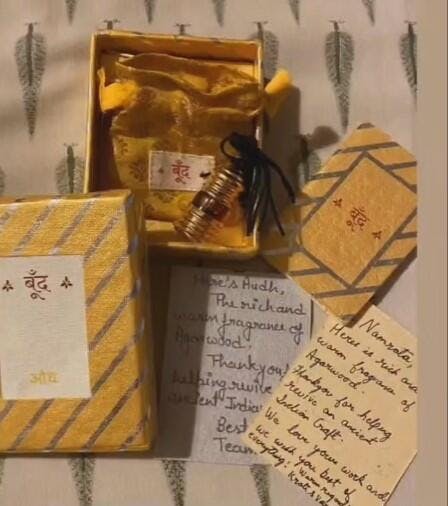 बूँद
बूँद
बूँद
औध
Here's Audh,
The rich and
warm fragrance of
Agarwood.
Thankyou
helping revive
ancient India
Best
Team
Namrata
Here is rich and
warm fragrance of
Agarwood
Thankyou for helping
revive an ancient
Indian Craft.
We love your work and
we wish you best of
everything! Warm regards